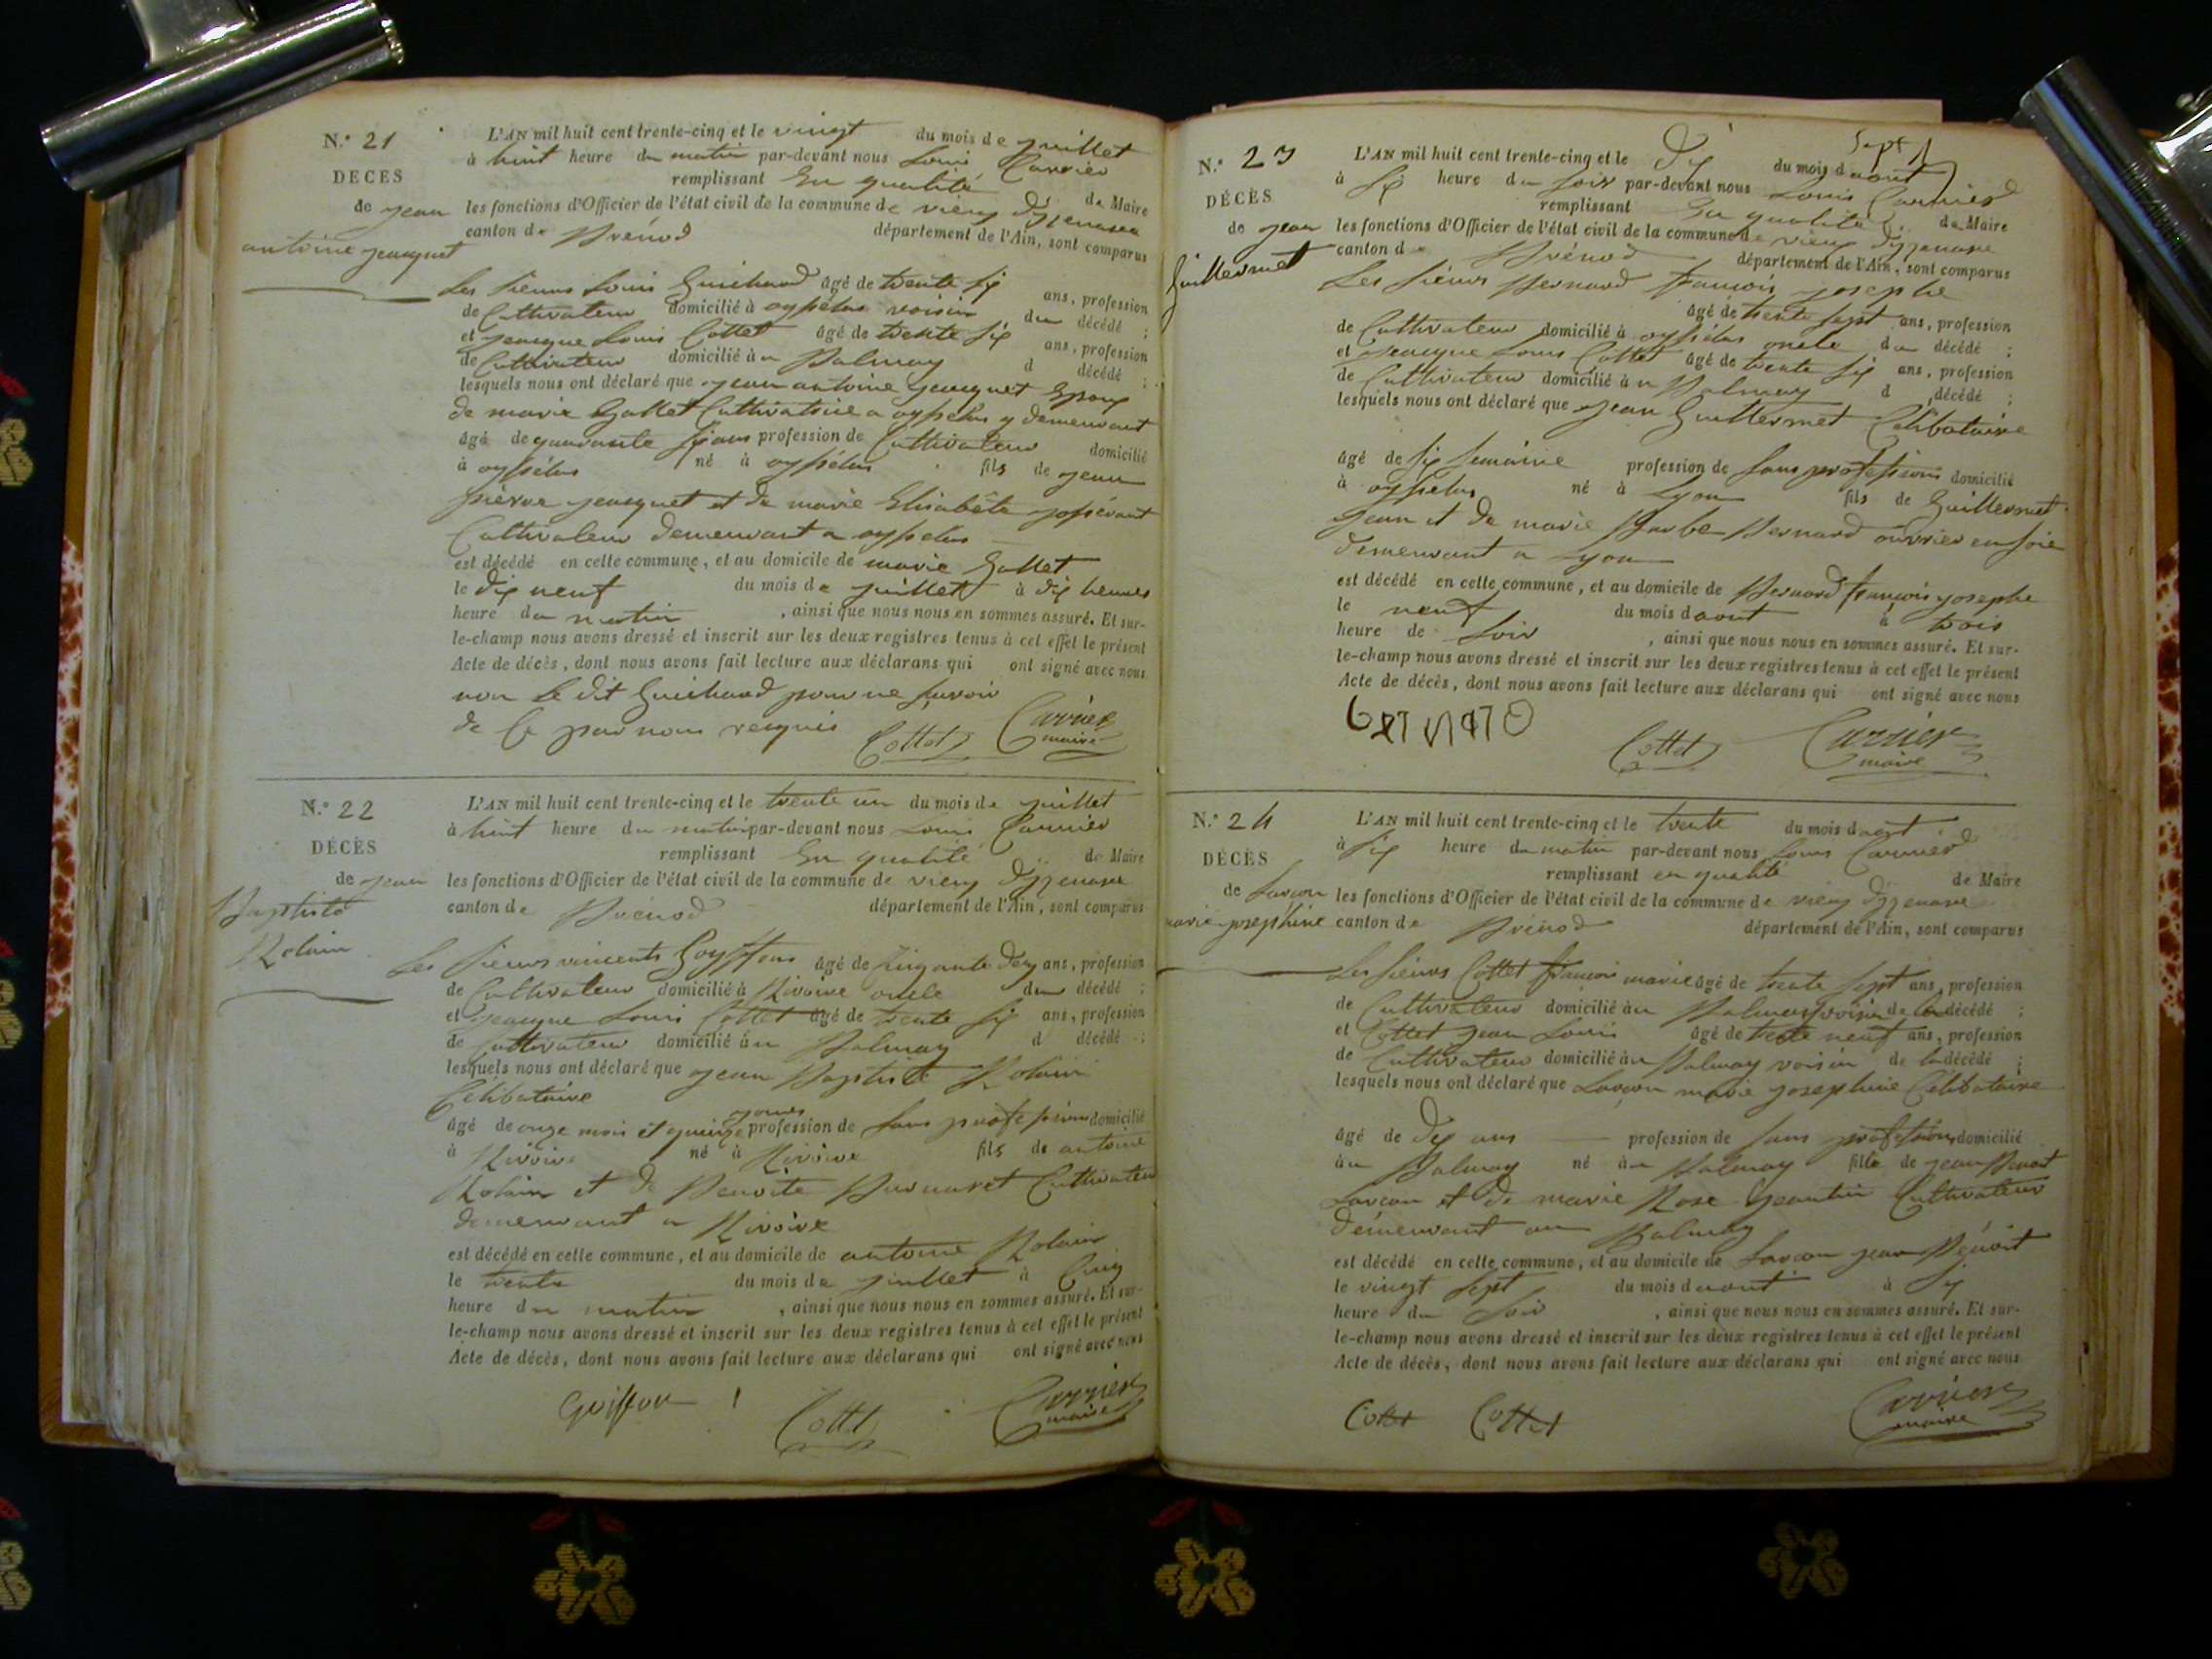 N.° 21
DECES
de jean
antoine jeacquet
L'AN mil huit cent trente-cinq et le vingt du mois de juillet
à huit heure du matin par-devant nous Louis Carrier
remplissant En qualité de Maire
les fonctions d'Officier de l'état civil de la commune de vieux d'izenave
canton de Brénod département de l'Ain, sont comparus
Les sieurs Louis Guichard âgé de trente six ans, profession
de Cultivateur domicilié à oysselas voisin du décédé ;
et jeacque Louis Cottet âgé de trente six ans, profession
de Cultivateur domicilié au Balmay d décédé ;
lesquels nous ont déclaré que jean antoine jeacquet Epoux
de marie Gallet Cultivatrice a oysselas y demeurant
âgé de quarante six ans profession de Cultivateur domicilié
à oysselas né à oysselas fils de jean
pierre jeacquet et de marie Elisabète
Cultivateur demeurant a oysselas
est décédé en cette commune, et au domicile de marie Gallet
le dix neuf du mois de juillet à dix heures
heure du matin , ainsi que nous nous en sommes assuré. Et sur-
le-champ nous avons dressé et inscrit sur les deux registres tenus à cet effet le présent
Acte de décès, dont nous avons fait lecture aux déclarans qui ont signé avec nous
non le dit Guichard pour ne savoir
de ce par nous requis Cottet Carrier
maire
N.° 22
DÉCÈS
de jean
Baptiste
Rolain
L'AN mil huit cent trente-cinq et le trente un du mois de juillet
à huit heure du matin par-devant nous Louis Carrier
remplissant En qualité de Maire
les fonctions d'Officier de l'état civil de la commune de vieux d'izenave
canton de Brénod département de l'Ain, sont comparus
Les sieurs vincents Goyffon âgé de sinquante deux ans, profession
de Cultivateur domicilié à Rivoire oncle du décédé ;
et jeacque Louis Cottet âgé de trente six ans, profession
de Cultivateur domicilié au Balmay d décédé ;
lesquels nous ont déclaré que jean Baptiste Rolain
Célibataire
âgé de onze mois et quinze jours profession de sans profession domicilié
à Rivoire né à Rivoire fils de antoine
Rolain et de Benoite Burnaret Cultivateur
demeurant a Rivoire
est décédé en cette commune, et au domicile de antoine Rolain
le trente du mois de juillet à Cinq
heure du matin , ainsi que nous nous en sommes assuré. Et sur-
le-champ nous avons dressé et inscrit sur les deux registres tenus à cet effet le présent
Acte de décès, dont nous avons fait lecture aux déclarans qui ont signé avec nous
Goiffon Cottet Carrier
maire
N.° 23
DÉCÈS
de jean
Guillermet
L'AN mil huit cent trente-cinq et le dix du mois d aout
à six heure du soir par-devant nous Louis Carrier
remplissant En qualité de Maire
les fonctions d'Officier de l'état civil de la commune de vieux d'izenave
canton de Brénod département de l'Ain, sont comparus
Les sieurs Bernard francois josephe
âgé de trente sept ans, profession
de Cultivateur domicilié à oysselas oncle du décédé ;
et jeacque Louis Cottet âgé de trente six ans, profession
de Cultivateur domicilié au Balmay d décédé ;
lesquels nous ont déclaré que jean Guillermet Célibataire
âgé de six semaine profession de sans profession domicilié
à oysselas né à Lyon fils de Guillermet
jean et de marie Barbe Bernard ouvrier en soie
demeurant a Lyon
est décédé en cette commune, et au domicile de Bernard françois josephe
le neuf du mois d aout à trois
heure de soir , ainsi que nous nous en sommes assuré. Et sur-
le-champ nous avons dressé et inscrit sur les deux registres tenus à cet effet le présent
Acte de décès, dont nous avons fait lecture aux déclarans qui ont signé avec nous
Cottet Carrier
maire
N.° 24
DÉCÈS
de Lavcon
marie josephine
L'AN mil huit cent trente-cinq et le trente du mois d aout
à six heure du matin par-devant nous Louis Carrier
remplissant en qualité de Maire
les fonctions d'Officier de l'état civil de la commune de vieux d'izenave
canton de Brénod département de l'Ain, sont comparus
Les sieurs Cottet francois marie âgé de trente sept ans, profession
de Cultivateur domicilié au Balmay voisin de la décédé ;
et Cottet jean Louis âgé de trente neuf ans, profession
de Cultivateur domicilié au Balmay voisin de la décédé ;
lesquels nous ont déclaré que Lavcon marie josephine Célibataire
âgé de dix ans profession de sans profession domicilié
au Balmay né au Balmay fille de jean Benoit
Lavcon et de marie Rose jeantin Cultivateur
demeurant au Balmay
est décédé en cette commune, et au domicile de Lavcon jean Benoit
le vingt sept du mois d aout à six
heure du soir , ainsi que nous nous en sommes assuré. Et sur-
le-champ nous avons dressé et inscrit sur les deux registres tenus à cet effet le présent
Acte de décès, dont nous avons fait lecture aux déclarans qui ont signé avec nous
Cottet Cottet Carrier
maire